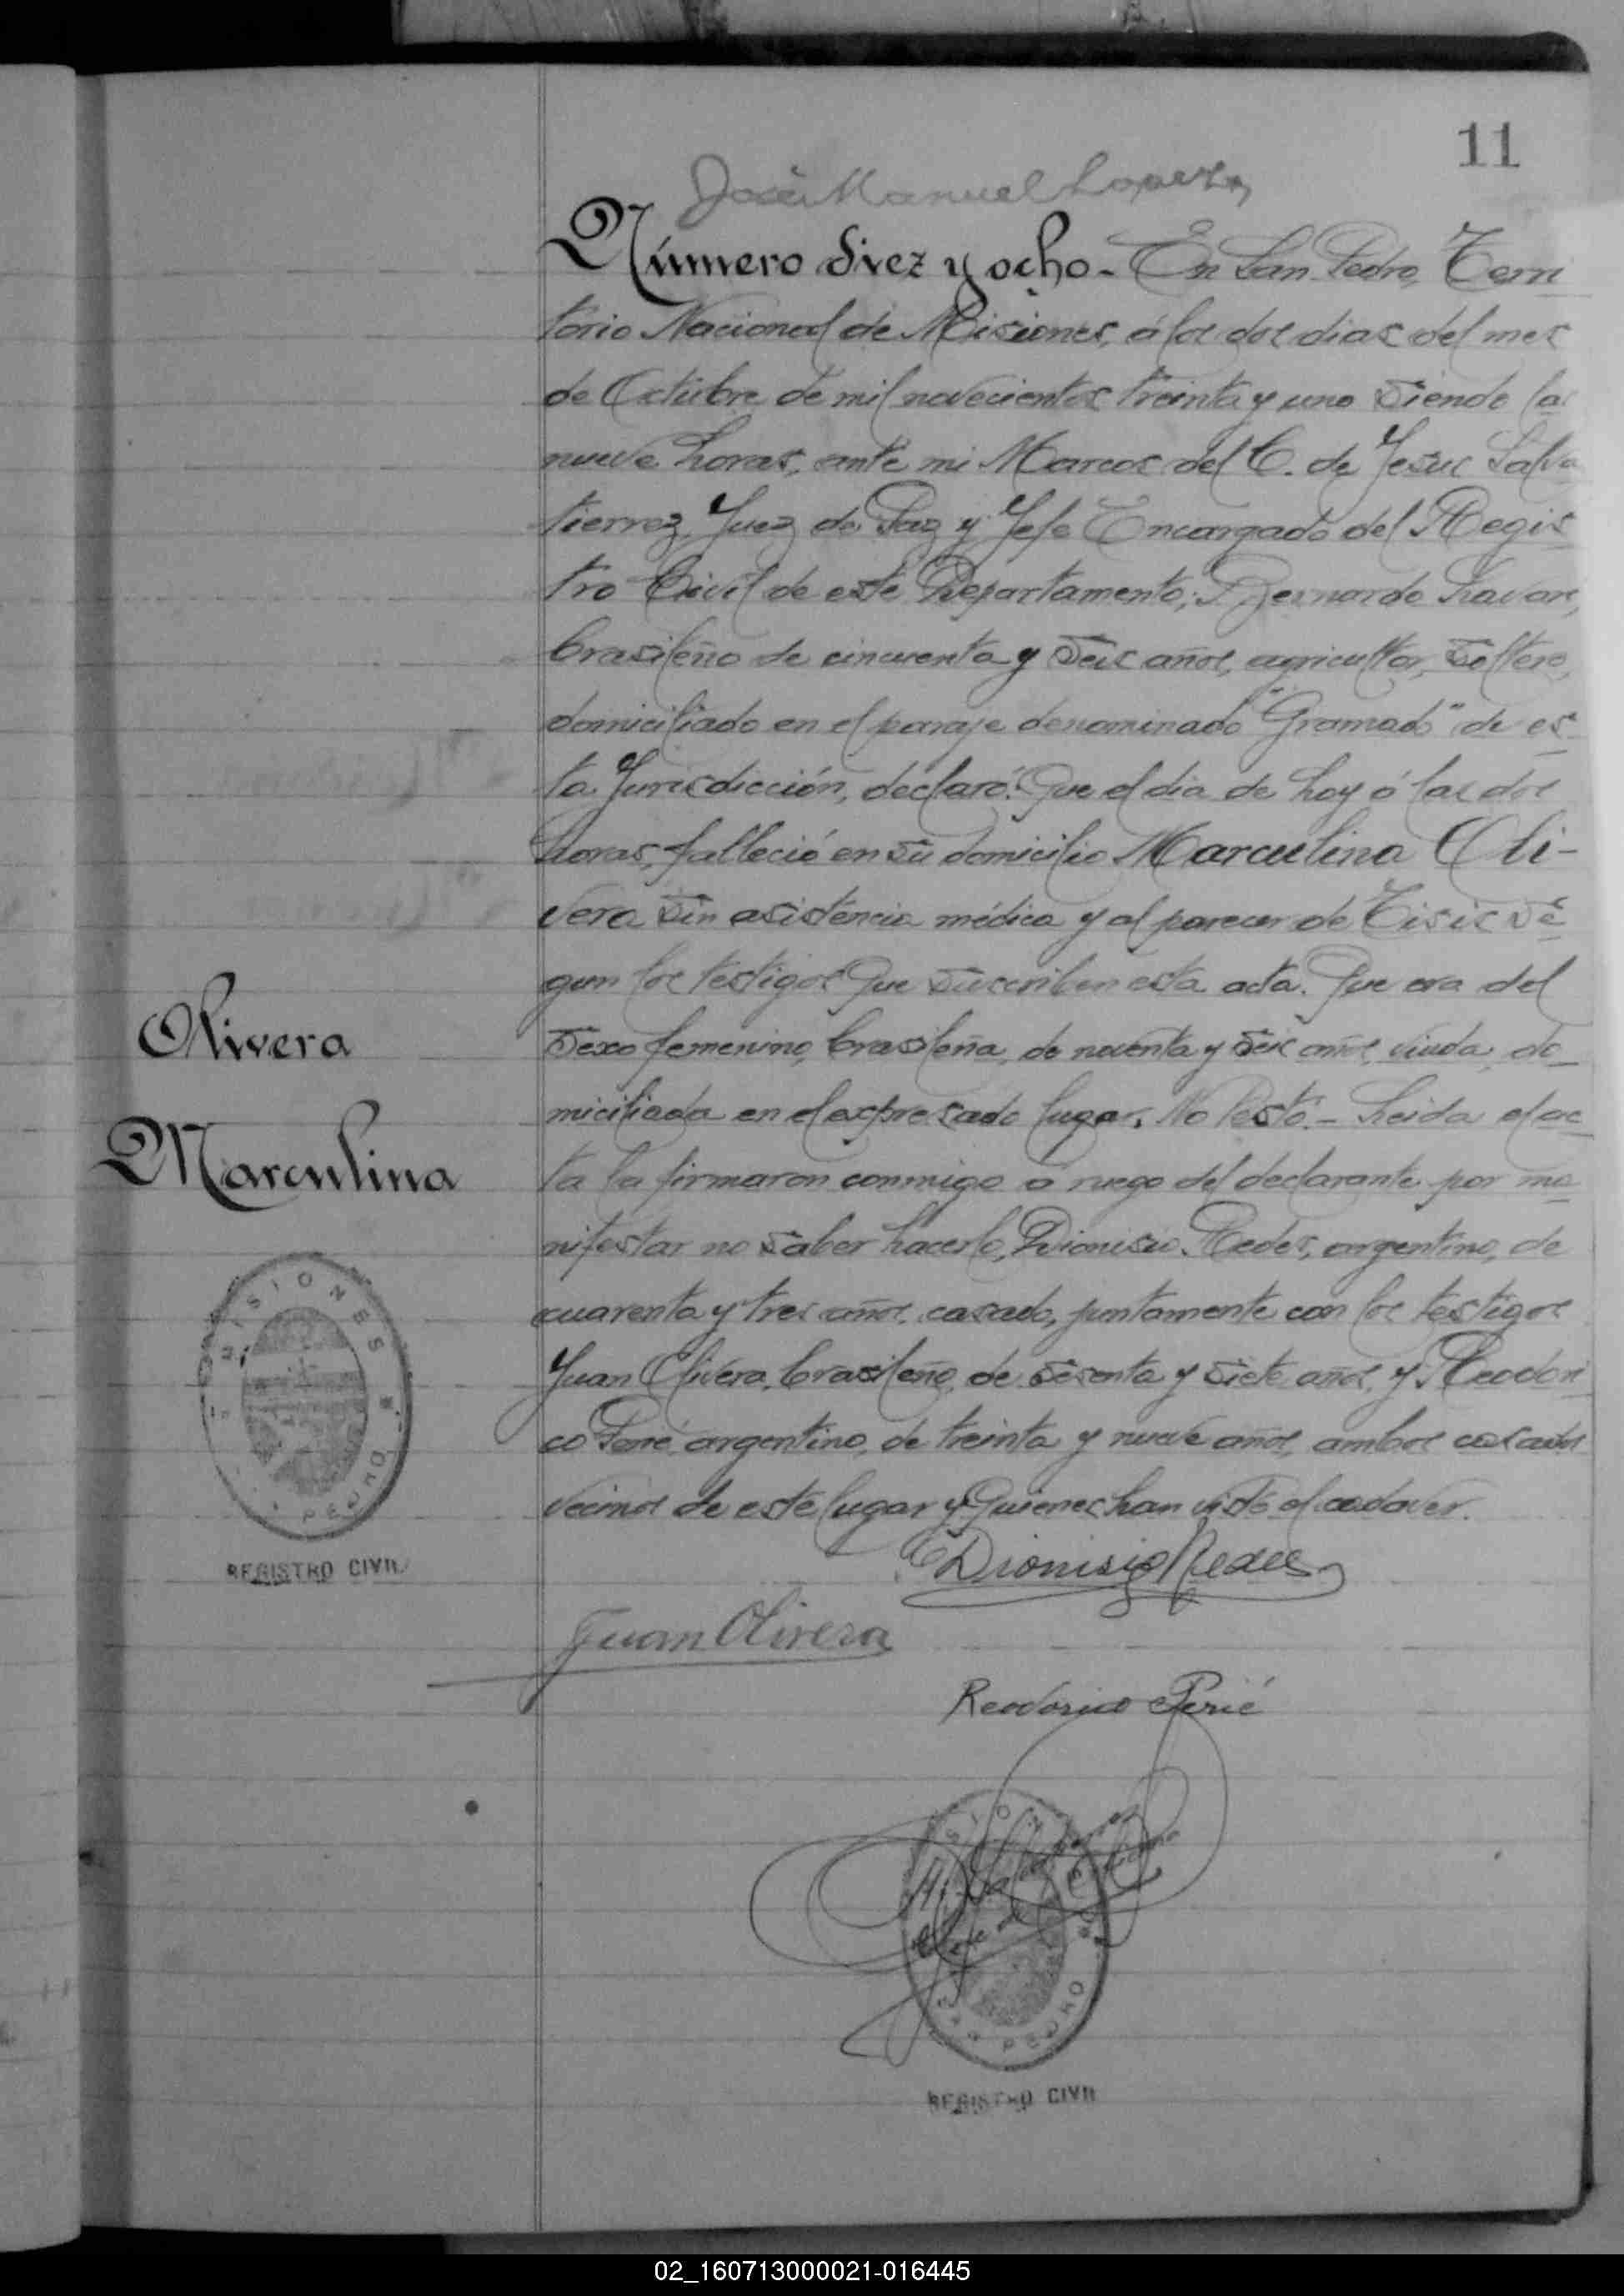 11
José Manuel Lopez
Número diez y ocho - En San Pedro, Terri
torio Nacional de Misiones, á los dos dias del mes
de Octubre de mil novecientos treinta y uno siendo las
nueve horas, ante mi Marcos del C. de Jesus Salva
tierrez, Juez de Paz y Jefe Encargado del Regis
tro Civil de este Departamento; Bernardo
brasileño de cincuenta y seis años, agricultor, soltero,
domiciliado en el paraje denominado "Gramado" de es-
ta Jurisdicción, declaró: Que el dia de hoy á las dos
horas, falleció en su domicilio Marculina Oli-
vera sin asistencia médica y al parecer de Tisis se
gun los testigos que suscriben esta acta. Que era del
sexo femenino, brasileña, de noventa y seis años, viuda, do-
miciliada en el expresado lugar. No Testó. - Leida el ac
ta la firmaron conmigo a ruego del declarante por ma
nifestar no saber hacerlo, Dionisio Redes, argentino, de
cuarenta y tres años, casado, juntamente con los testigos
Juan Olivera, brasileño, de sesenta y siete años, y Reodori
co Perié, argentino, de treinta y nueve años, ambos casados
vecinos de este lugar y quienes han visto el cadaver.
Olivera
Marculina
MISIONES
PEDRO
REGISTRO CIVIL
Dionisio Redes
Juan Olivera
Reodorico Perié
PEDRO
REGISTRO CIVIL
02_160713000021-016445